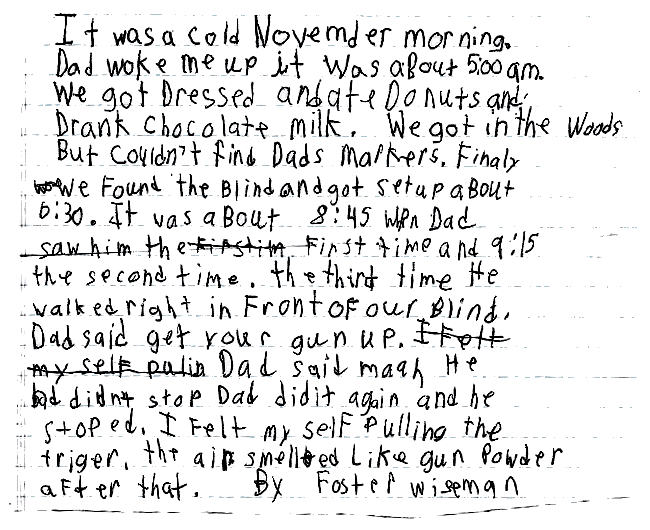 It was a cold Novemder morning.
Dad woke me up it was about 5:00 am.
We got Dressed and ate Donuts and
Drank chocolate milk. We got in the Woods
But Couldn't find Dads Markers. Finaly
We Found the Blind and got setup aBout
6:30. It was aBout 8:45 wen Dad
saw him the first tim First time and 9:15
the second time. the third time He
walked right in Front oF our Blind.
Dad said get your gun up. I Felt
my self pulin Dad said maah He
didnt stop Dad did it again and he
stoped. I Felt my self Pulling the
triger, the air smelled Like gun Powder
aFter that. By Foster wiseman